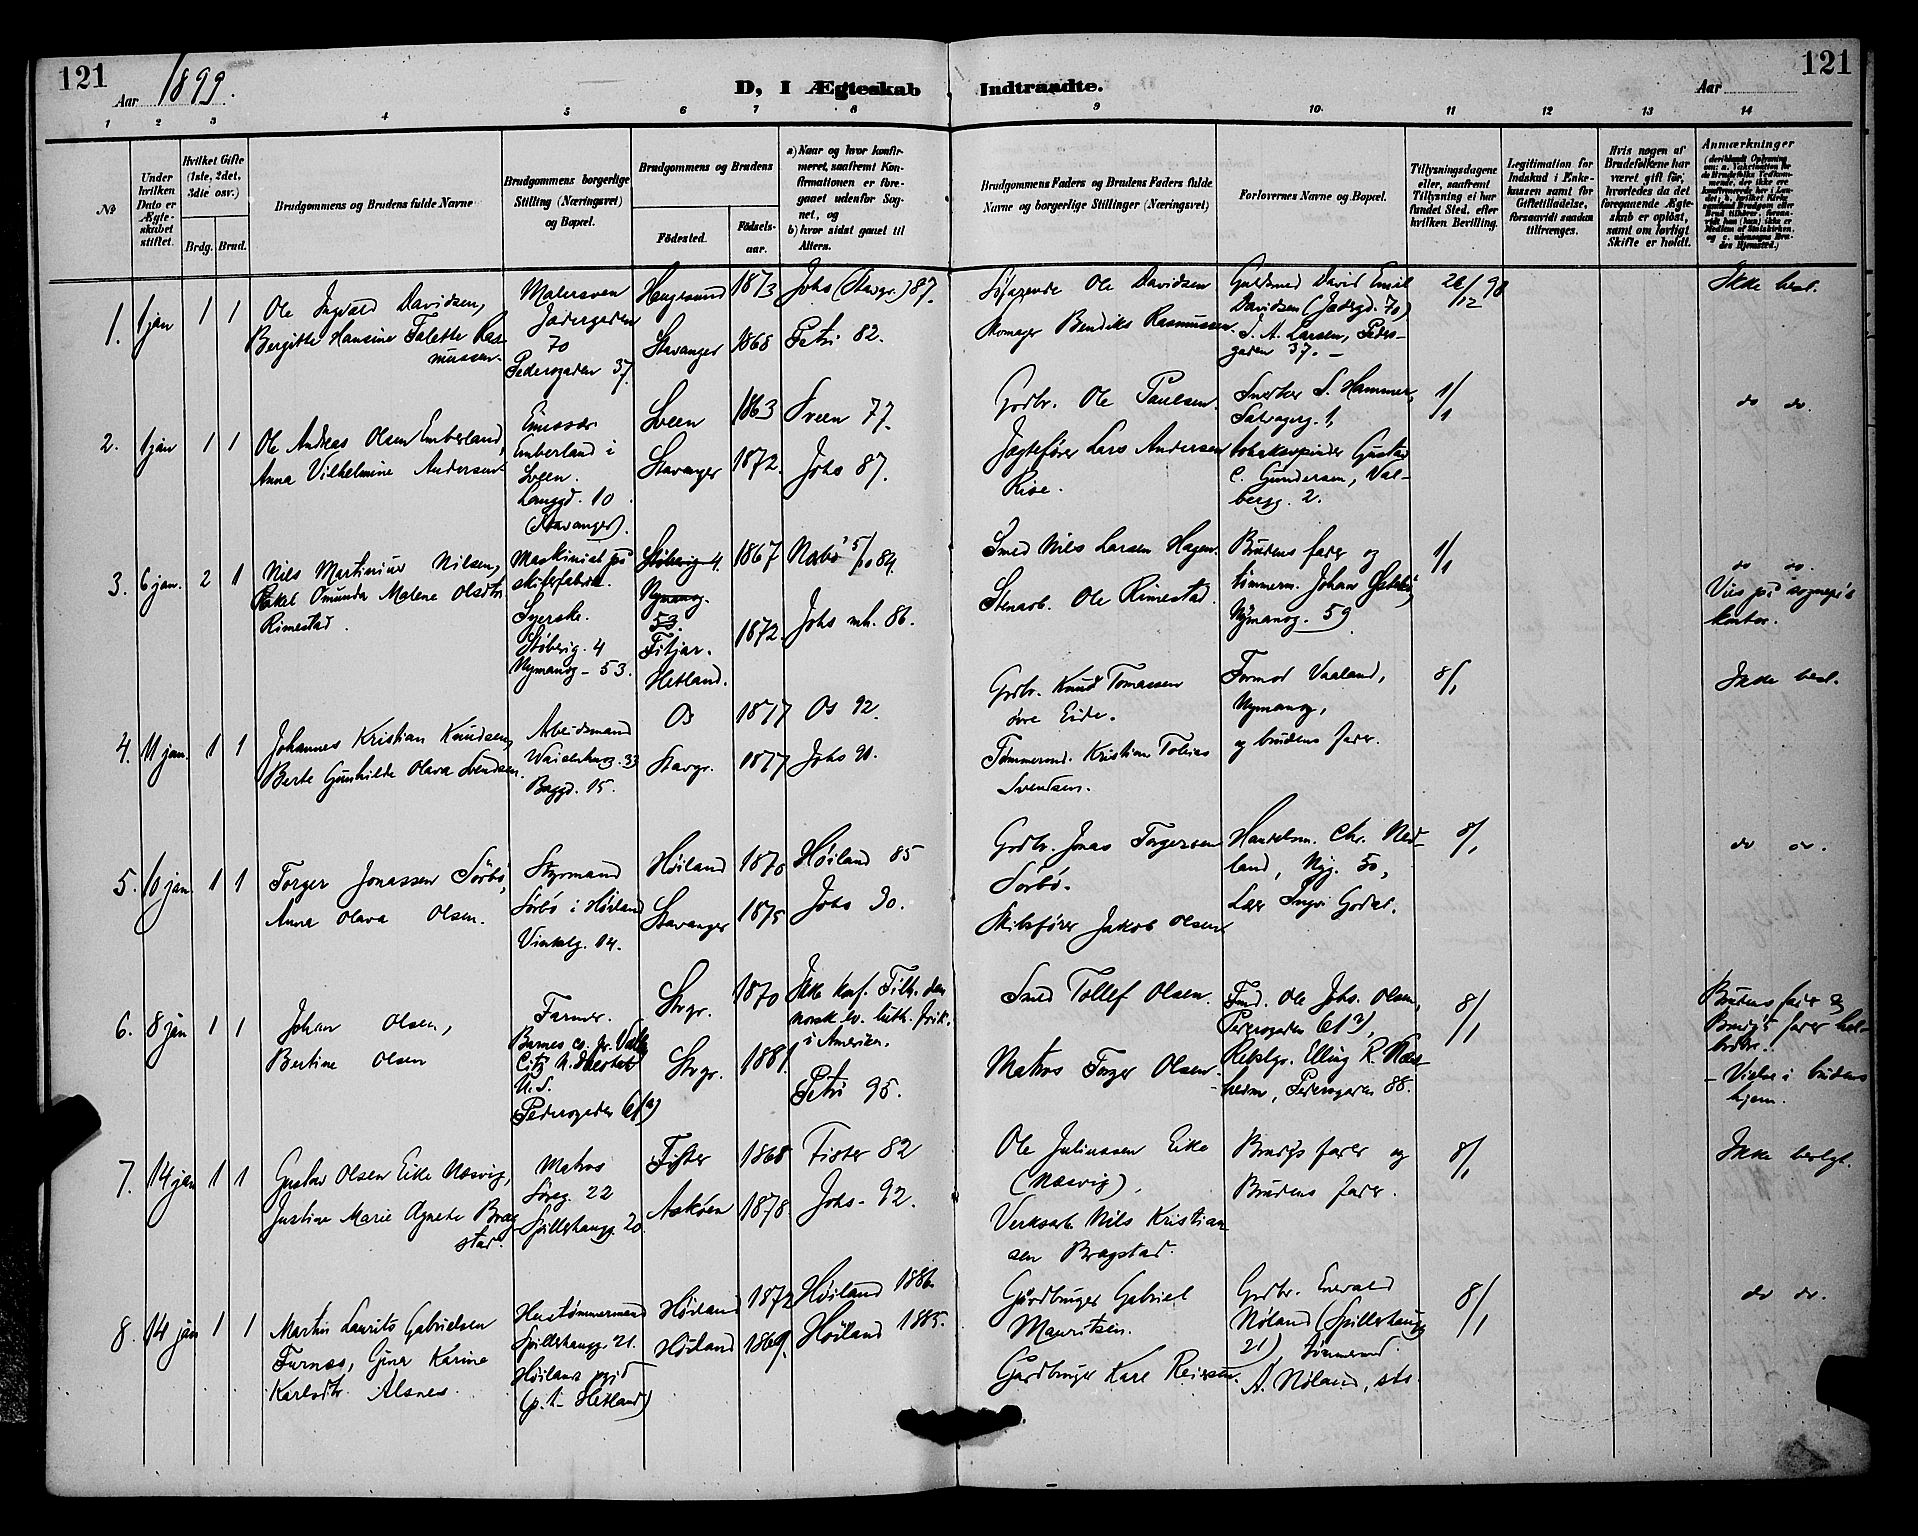 121
Aar 1899.
D, I Ægteskab Indtraadte.
Aar
121
1 2 3 4 5 6 7 8 9 10. 11 12 13 14
№
Under hvilken Dato er Ægteskabet stiftet.
Hvilket Gifte (1ste, 2det, 3die osv.)
Brdg. Brud.
Brudgommens og Brudens fulde Navne
Brudgommens borgerlige Stilling (Næringsvei) og Bopæl.
Brudgommens og Brudens
Fødested.
Fødselsaar.
a) Naar og hvor konfirmeret, saafremt Konfirmationen er foregaaet udenfor Sognet, og
b) hvor sidst gaaet til Alters.
Brudgommens Faders og Brudens Faders fulde Navne og borgerlige Stillinger (Næringsvei)
Forlovernes Navne og Bopæl.
Tillysningsdagene eller, saafremt Tillysning ei har fundet Sted, efter hvilken Bevilling.
Legitimation for Indskud i Enkekassen samt for Giftetilladelse, forsaavidt saadan tiltrænges.
Hvis nogen af Brudefolkene har været gift før, hvorledes da det foregaaende Ægteskab er opløst, samt om lovligt Skifte er holdt.
Anmærkninger
1. 1 jan 1 1
Ole Ingvald Davidsen,
Bergitte Hansine Talette Rasmussen.
Malersven
Jadergaden
70
Pedersgaden 37.
Haugesund 1873 Johs (Stavgr.) 87.
Stavanger 1868 Petri 82.
Søfarende Ole Davidsen
Skomager Bendiks Rasmussen
Guldsmed David Emil
Davidsen (Jadrgd. 70)
S. A. Larsen, Peders-
gaden 37. –
26/12 98
Ikke besl.
2. 1 jan 1 1
Ole Andreas Olsen Emberland,
Anna Vilhelmine Andersen
Emissær
Emberland i
Sveen.
Langgd. 10
(Stavanger).
Sveen 1863 Sveen 77.
Stavanger 1872. Johs 87.
Grdbr. Ole Paulsen.
Jægtefører Lars Andersen
Rise.
Snedker S. Hammer,
1,
Gustav
C. Gundersen, Val-
bergg. 2.
1/1
do do.
3. 6 jan. 2 1
Nils Martinius Nilsen,
Rakel Omunda Malene Olsdtr
Rimestad.
Maskinist på
Syerske.
Støberig. 4
Nymansg. 53.
Støberig 4.
Nymansg.
53.
Fitjar.
Hetland.
1867 5/10 84.
1872. Johs mh. 86.
Smed Nils Larsen Hagen.
Stenarb. Ole Rimestad.
Brudens fader og
tømmerm. Johan
Nymansg. 59.
1/1
do do.
Viet på sognepr's
kontor.
4. 11 jan. 1 1
Johannes Kristian Knudsen,
Berte Gunhilde Olava Svendsen.
Arbeidsmand
33
Baggd. 15.
Os 1877 Os 92.
Stavgr. 1877 Johs 91.
Grdbr. Knud Tomassen
øvre Eide.
Tømmermd. Kristian Tobias
Svendsen.
Formod Vaaland,
Nymansg,
og brudens fader.
8/1
Ikke besl.
5. 10 jan 1 1
Torger Jonassen Sörbö,
Anna Olava Olsen.
Styrmand
Sörbö i Höiland
Vinkelg. 14.
Höiland 1870 Höiland 85
Stavanger 1875 Johs 90.
Grdbr. Jonas Torgersen
Sörbö.
Skibsfører Jakob Olsen
Handelsm. Chr. Ned-
land, Nyg. 50,
Lærer
8/1
do do.
6. 8 jan 1 1
Johan Olsen,
Bertine Olsen
Farmer.
Barnes co. pr. Valley
City N. Dakota
U.S.
Pedersgaden 61a)
Stvgr. 1870 Ikke konf. Tilh. den
norsk ev. luth. frik.
i Amerika.
Stvgr. 1881. Petri 95.
Smed Tollef Olsen.
Matros Torger Olsen
Ole Johs. Olsen,
Pedersgaden 61a),
Rebslgr. Elling R.
Pedersgaden 88.
8/1
Brudens fader og
Brudg's fader hel-
brødre.
– Vielse i brudens
hjem.
7. 14 jan 1 1
Gustav Olsen Eike Næsvig,
Justine Marie Agnete Brag-
stad.
Matros
Søreg. 22
Spilderhaugg. 20.
Fister 1868 Fister 82
Askøen 1878 Johs. 92.
Ole Juliussen Eike
(Næsvig),
Verksarb. Nils Kristian-
sen Bragstad.
Brudg's fader og
Brudens fader.
8/1
Ikke beslgt.
8. 14 jan 1 1
Martin Laurits Gabrielsen
Furnæs, Gina Karine
Karlsdtr. Alsnes.
Hustømmermand
Spilderhaugg. 21.
Höiland pgjd
(p.t. Hetland)
Höiland 1872 Höiland 1886.
Höiland 1869. Höiland 1885.
Gårdbruger Gabriel
Mauritsen.
Gårdbruger Karl
Grdbr. Enevald
Nøland (Spilderhaugg
21) tømmermd.
A. Nøland, sts.
8/1
do do.